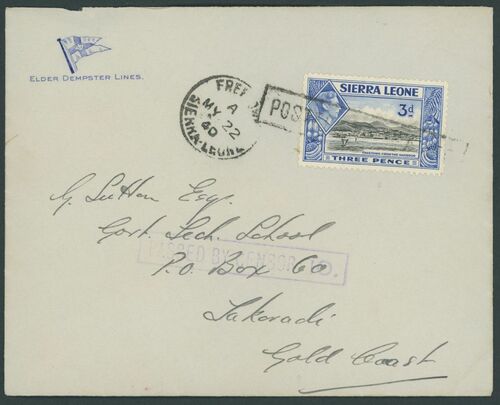 ELDER DEMPSTER LINES.
FREE
A
MY 22
40
SIERRA-LEONE
POS
SIERRA LEONE
3d
THREE PENCE
G. Sutton Esq.
Govt. Tech. School
PASSED BY CENSOR 10.
P.O. Box 60
Takoradi
Gold Coast